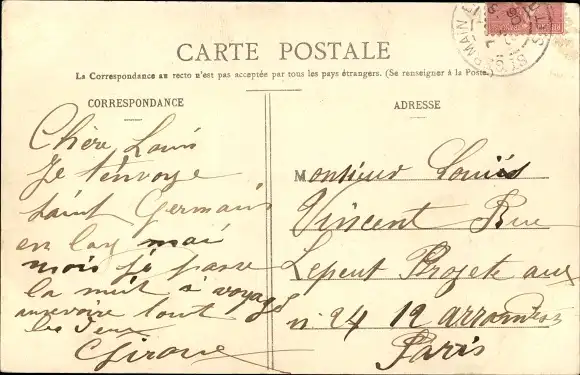 CARTE POSTALE
La Correspondance au recto n'est pas acceptée par tous les pays étrangers. (Se renseigner à la Poste.)
CORRESPONDANCE
Chère Louis
Je t'envoye
saint Germain
en lay mai
mois je passe
la nuit a voyagé
auxevoire tout
les deux
Giroux
ADRESSE
Monsieur Louis
Vincent Rue
Lepeut Projete aux
n. 24 12 arrondis
Paris